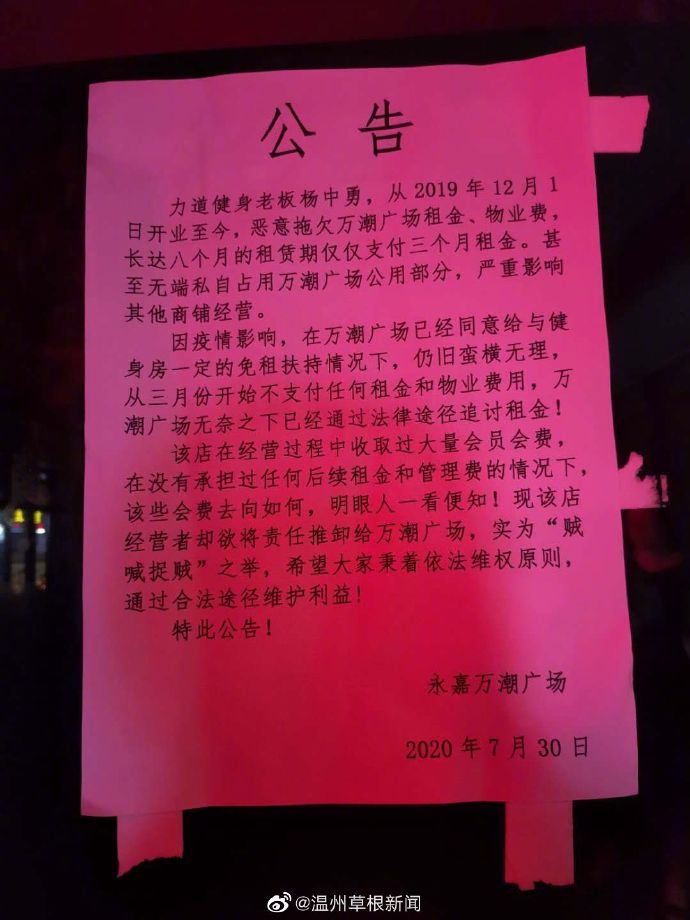 公 告
力道健身老板杨中勇，从 2019 年 12 月 1
日开业至今，恶意拖欠万潮广场租金、物业费，
长达八个月的租赁期仅仅支付三个月租金。甚
至无端私自占用万潮广场公用部分，严重影响
其他商铺经营。
因疫情影响，在万潮广场已经同意给与健
身房一定的免租扶持情况下，仍旧蛮横无理，
从三月份开始不支付任何租金和物业费用，万
潮广场无奈之下已经通过法律途径追讨租金！
该店在经营过程中收取过大量会员会费，
在没有承担过任何后续租金和管理费的情况下，
该些会费去向如何，明眼人一看便知！现该店
经营者却欲将责任推卸给万潮广场，实为“贼
喊捉贼”之举，希望大家秉着依法维权原则，
通过合法途径维护利益！
特此公告！
永嘉万潮广场
2020 年 7 月 30 日
@温州草根新闻